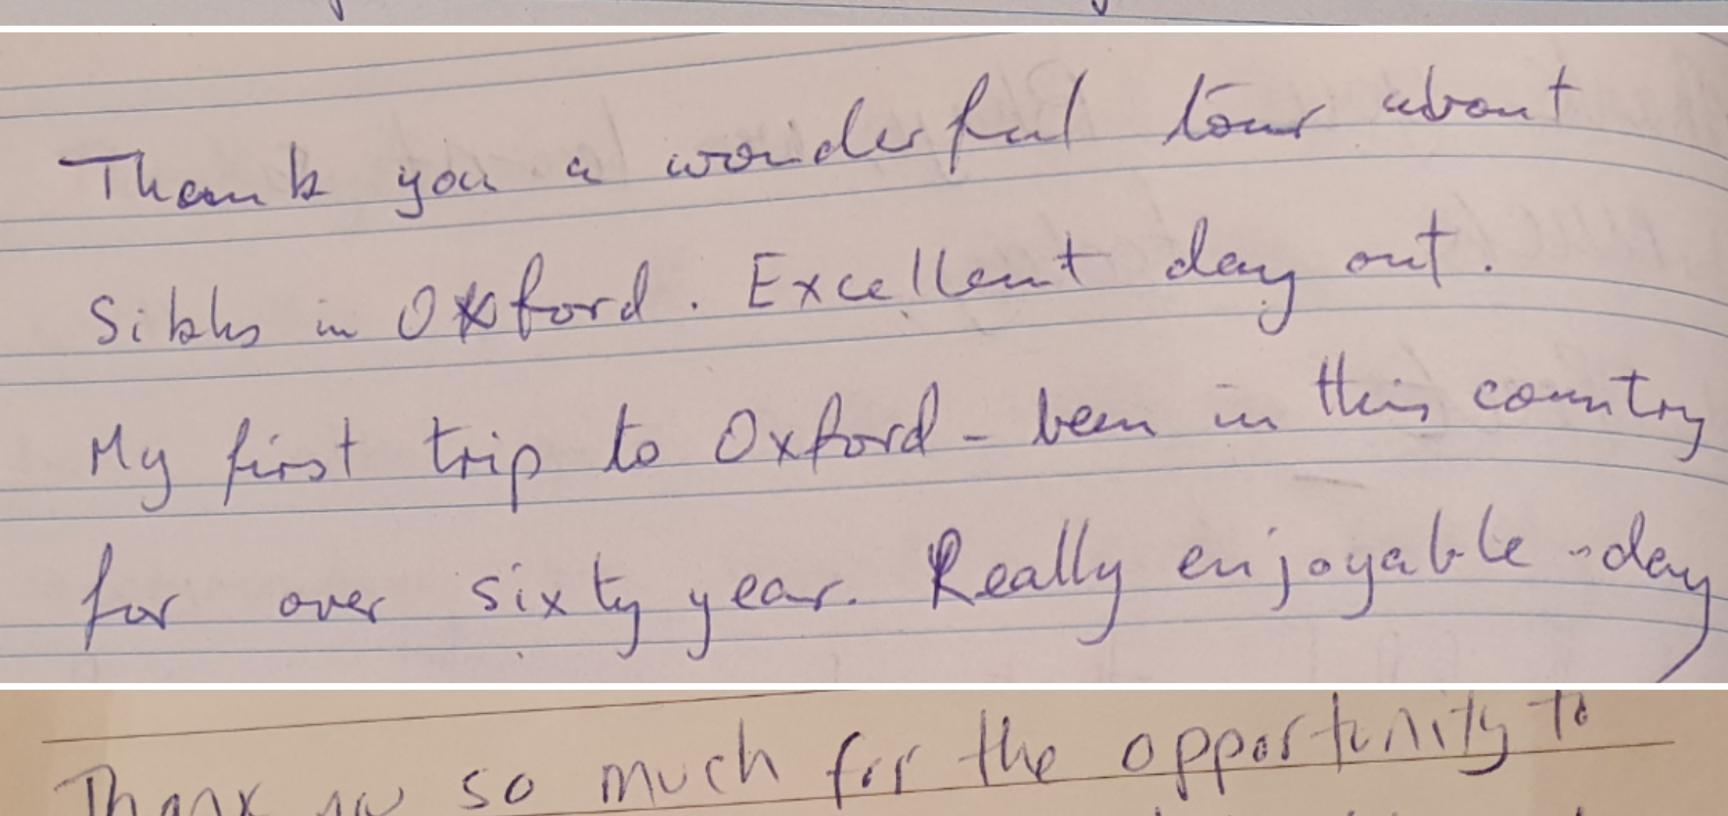 Thank you a wonderful tour about
Sikhs in Oxford. Excellent day out.
My first trip to Oxford - been in this country
for over sixty year. Really enjoyable - day
Thank you so much for the opportunity to